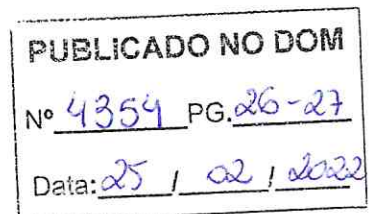 PUBLICADO NO DOM
Nº 4354 PG. 26-27
Data: 25 / 02 / 2022